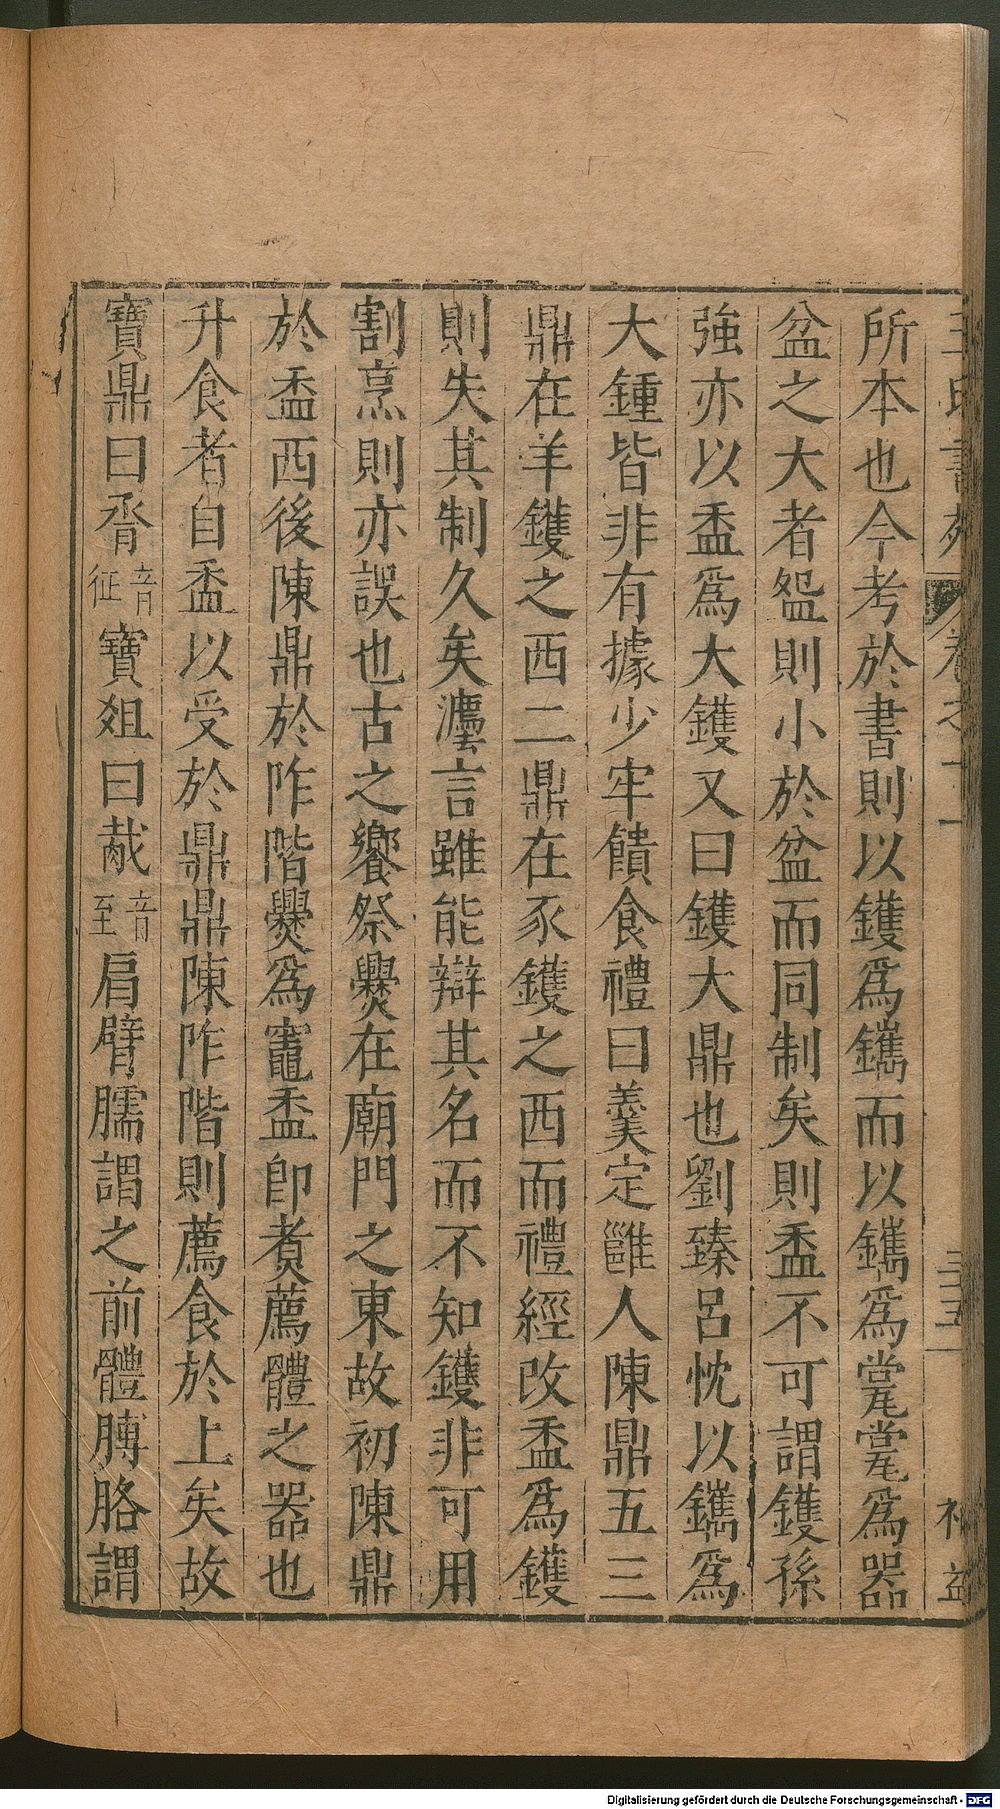 所本也今考於書則以鑊爲鐫而以鐫爲甗甗爲器
盆之大者㼝則小於盆而同制矣則盉不可謂鑊孫
強亦以盉爲大鑊又曰鑊大鼎也劉臻呂忱以鐫爲
大鍾皆非有據少牢饋食禮曰羹定雝人陳鼎五三
鼎在羊鑊之西二鼎在豕鑊之西而禮經改盉爲鑊
則失其制久矣灋言雖能辯其名而不知鑊非可用
割烹則亦誤也古之饗祭爨在廟門之東故初陳鼎
於盉西後陳鼎於阼階爨爲竈盉卽煑薦體之器也
升食者自盉以受於鼎鼎陳阼階則薦食於上矣故
寶鼎曰脀音征寶爼曰胾音至肩臂臑謂之前體膊胳謂
卷之十一
三五
Digitalisierung gefördert durch die Deutsche Forschungsgemeinschaft - DFG